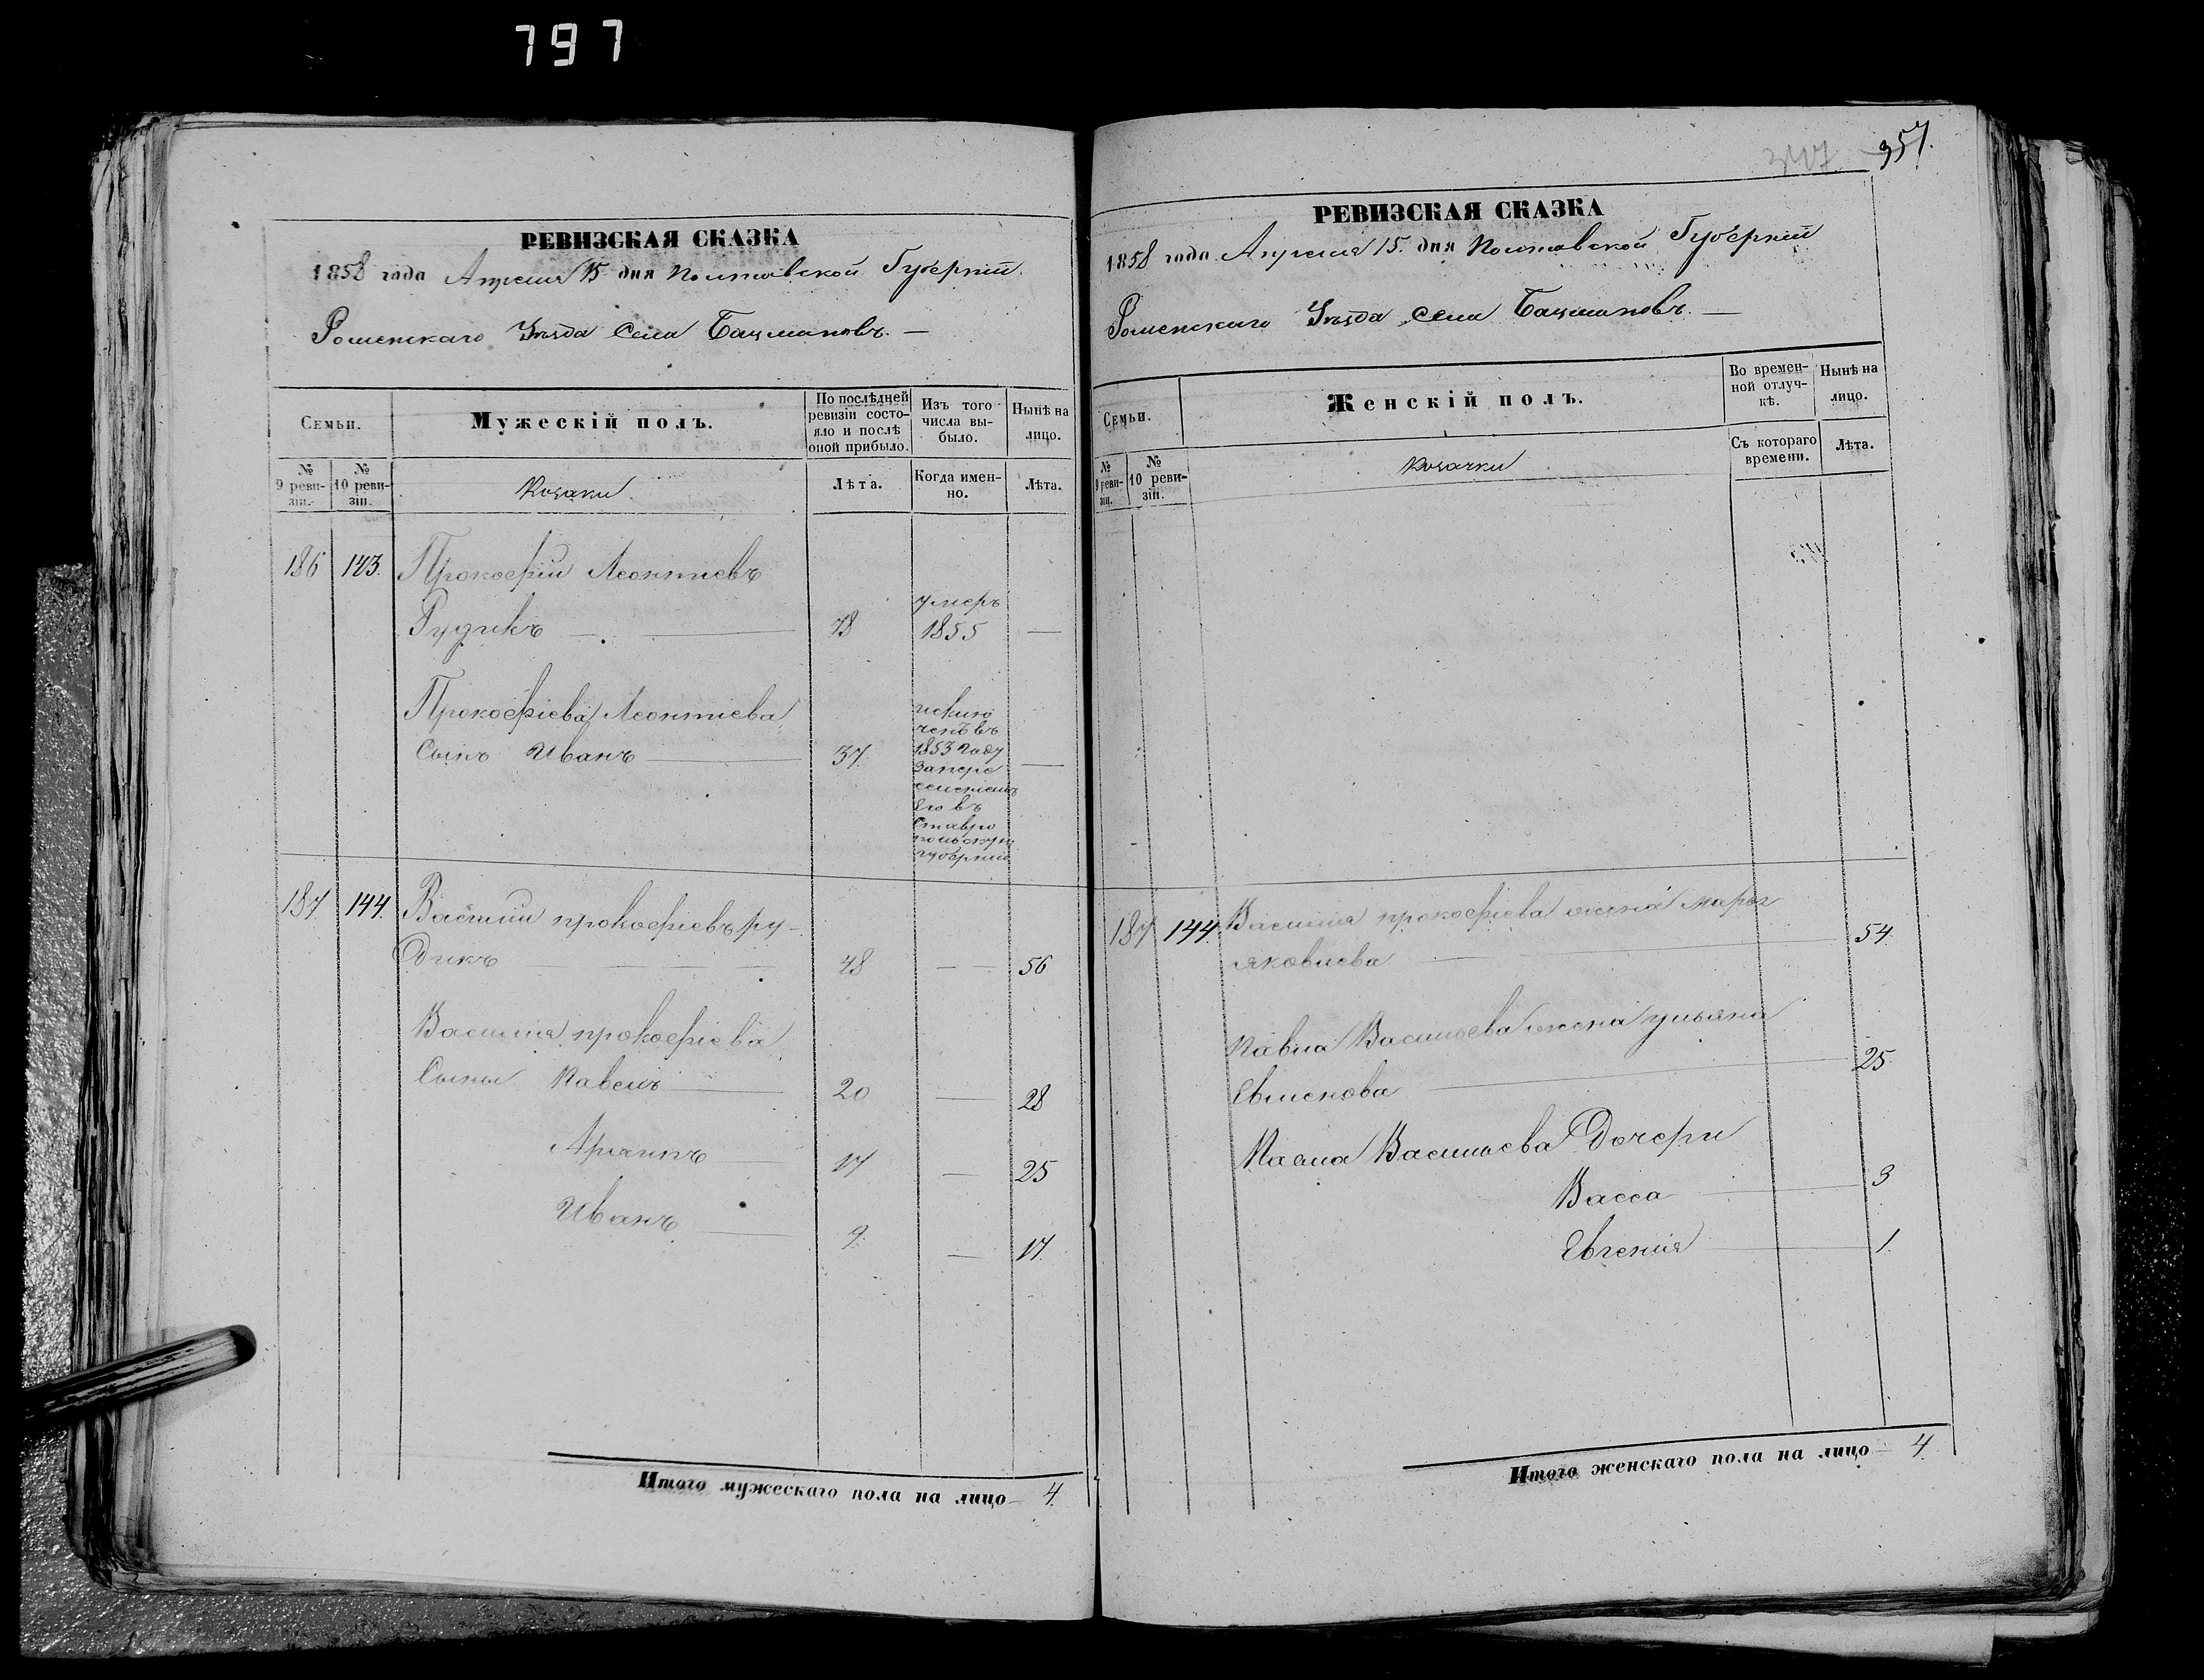 797
РЕВИЗСКАЯ СКАЗКА
1858 года Апреля 15 дня Полтавской Губерніи
Роменскаго Уѣзда Села Бацмановъ.
Семьи.
Мужескій полъ.
По послѣдней ревизіи состояло и послѣ оной прибыло.
Изъ того числа выбыло.
Нынѣ на лицо.
№ 9 ревизіи.
№ 10 ревизіи.
Козаки.
Лѣта.
Когда именно.
Лѣта.
186 143. Прокофій Леонтіевъ
Рудикъ 78 умеръ 1855 —
Прокофіева Леонтіева
Сынъ Иванъ 37. —
исклю
ченъ въ
1853 году
за пере
селеніемъ
его въ
Ставро
польскую
губернію
187 144. Василій прокофіевъ ру-
дикъ 48 — 56
Василія прокофіева
Сыны Павелъ 20 — 28
17 — 25
Иванъ 9. — 17.
Итого мужескаго пола на лицо 4.
347 357.
РЕВИЗСКАЯ СКАЗКА
1858 года Апреля 15. дня Полтавской Губерніи
Роменскаго Уѣзда Села Бацмановъ.
Семьи.
Женскій полъ.
Во временной отлучкѣ.
Нынѣ на лицо.
№ 9 ревизіи.
№ 10 ревизіи.
Козачки
Съ котораго времени.
Лѣта.
187 144. Василія прокофіева жена Марья
яковлева 54.
Павла Васильева жена ульяна
25.
Павла Васильева Дочери
Васса 3
Евгенія 1.
Итого женскаго пола на лицо 4